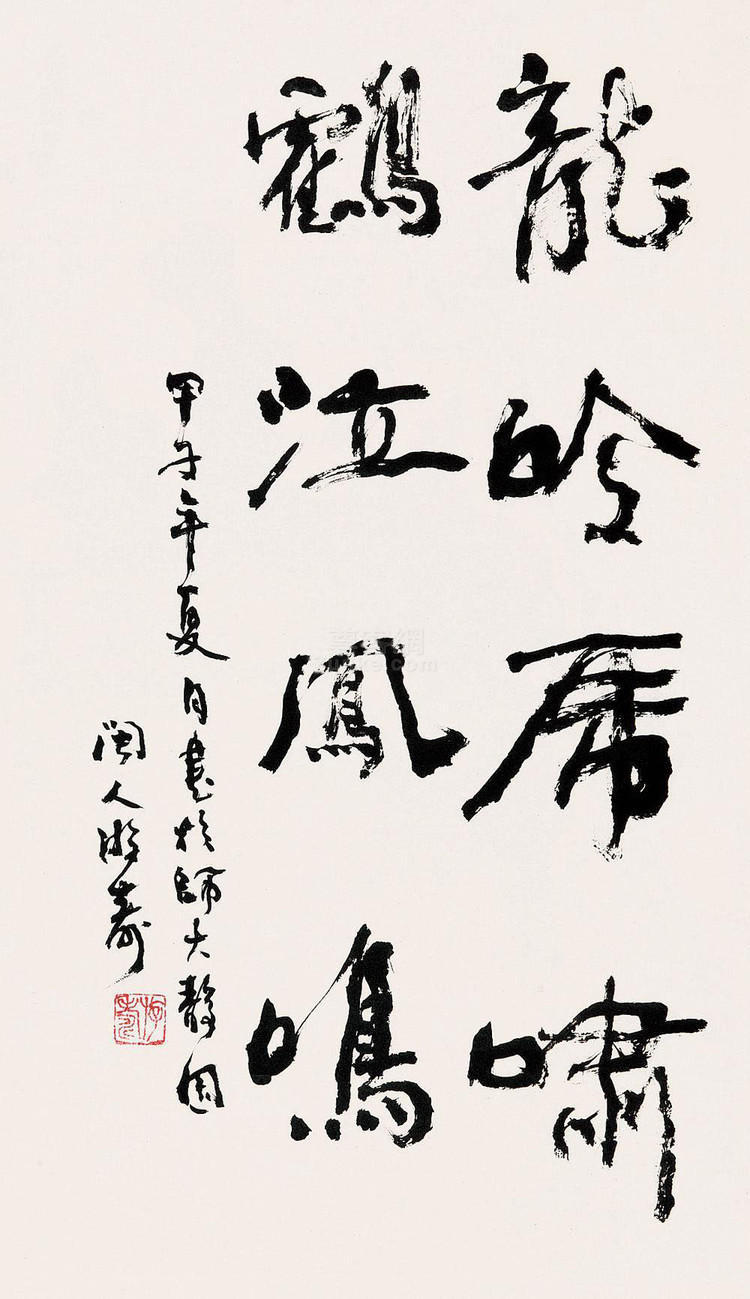 龍吟虎嘯
鸖泣鳳鳴
甲子年夏月書於師大靜園
閩人游壽
游壽